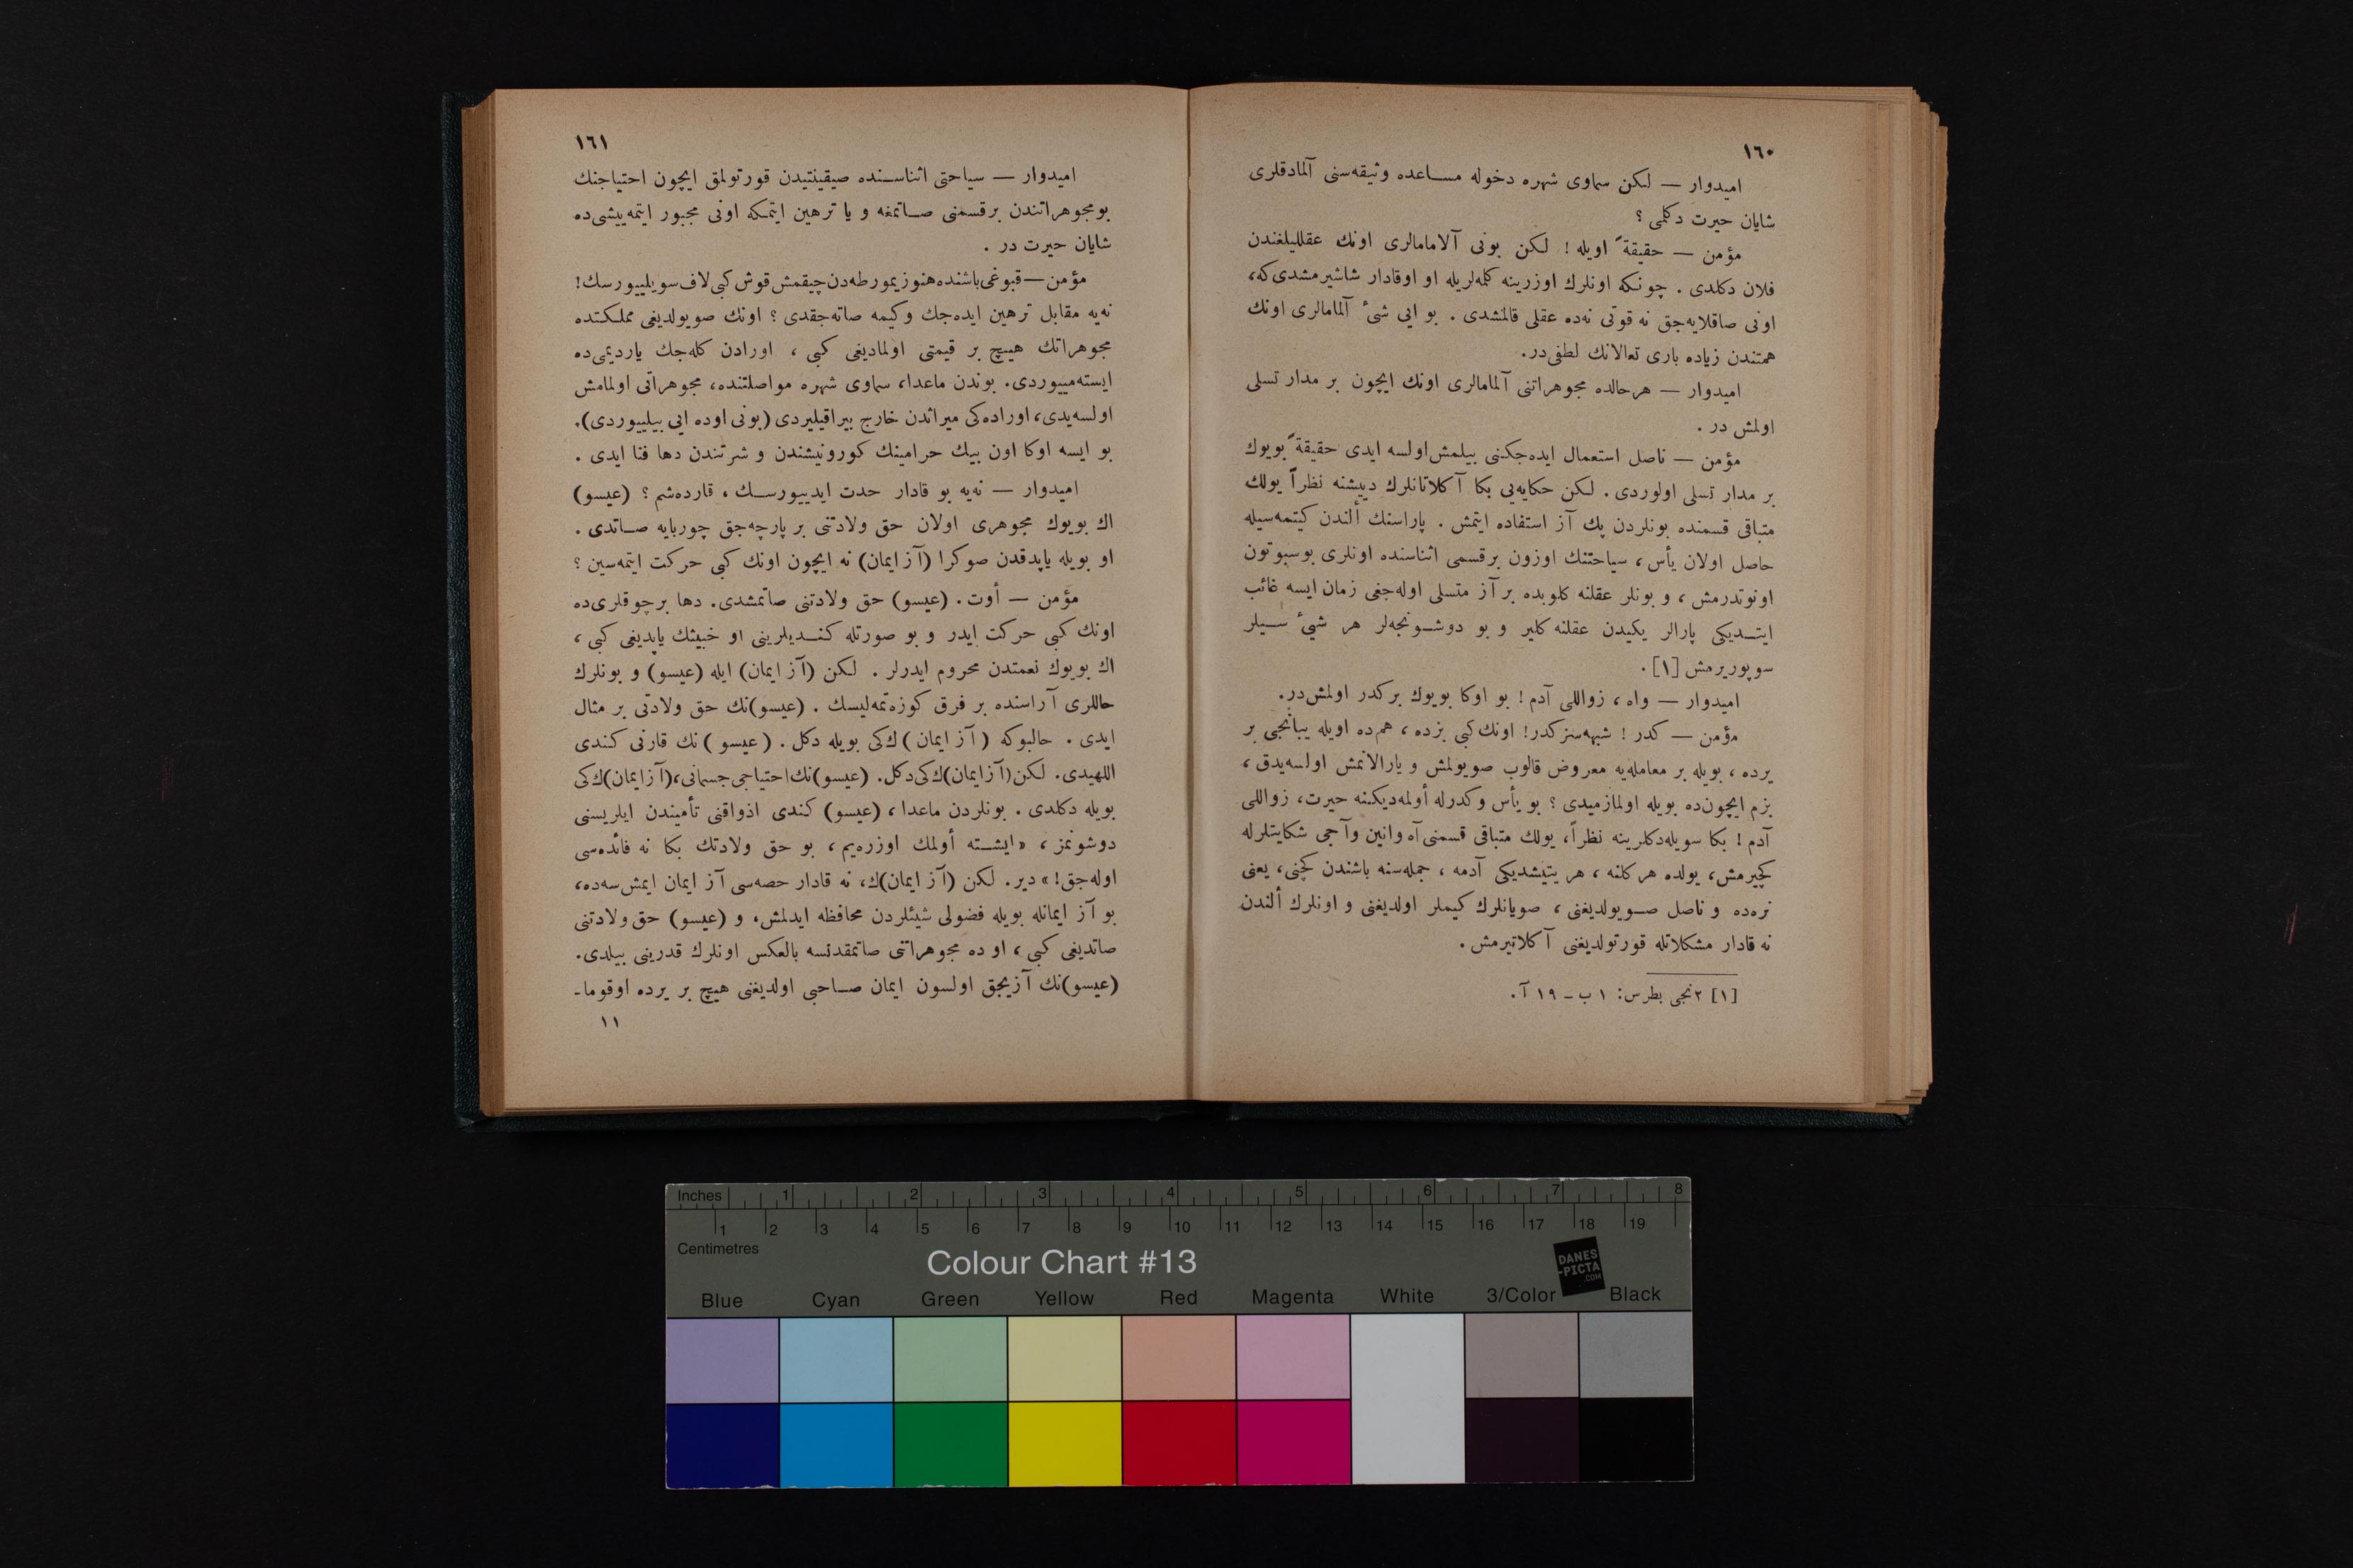 ١٦٠
امیدوار — لکن سماوی شهره دخوله مساعده وثیقه‌سنی آلمادقلری
شایان حیرت دکلمی ؟
مؤمن — حقیقةً اویله ! لکن بونی آلامامالری اونك عقللیلغندن
فلان دکلدی . چونکه اونلرك اوزرینه کلمه‌لریله او اوقادار شاشیرمشدی‌که،
اونی صاقلایه‌جق نه قوتی نه‌ده عقلی قالمشدی . بو ایی شیٔ آلمامالری اونك
همتندن زیاده باری تعالانك لطفی‌در.
امیدوار — هرحالده مجوهراتنی آلمامالری اونك ایچون بر مدار تسلی
اولمش در .
مؤمن — ناصل استعمال ایده‌جکنی بیلمش اولسه ایدی حقیقةً بویوك
بر مدار تسلی اولوردی . لکن حکایه‌یی بکا آکلاتانلرك دییشنه نظراً یولك
متباقی قسمنده بونلردن پك آز استفاده ایتمش . پاراسنك ألندن کیتمه‌سیله
حاصل اولان یأس ، سیاحتنك اوزون برقسمی اثناسنده اونلری بوسبوتون
اونوتدرمش ، و بونلر عقلنه کلوبده بر آز متسلی اوله‌جغی زمان ایسه غائب
ایتدیکی پارالر یکیدن عقلنه کلیر و بو دوشونجه‌لر هر شیٔی سیلر
سوپوریرمش [١] .
امیدوار — واه ، زواللی آدم ! بو اوکا بویوك برکدر اولمش‌در.
مؤمن — کدر ! شبهه‌سز کدر! اونك کبی بزده ، هم‌ده اویله یبانجی بر
یرده ، بویله بر معامله‌یه معروض قالوب صویولمش و یارالانمش اولسه‌یدق ،
بزم ایچون‌ده بویله اولمازمیدی ؟ بو یأس وکدرله أولمه‌دیکنه حیرت، زواللی
آدم ! بکا سویله‌دکلرینه نظراً، یولك متباقی قسمنی آه وانین وآجی شکایتلرله
کچیرمش، یولده هرکلنه ، هر یتیشدیکی آدمه ، جمله‌سنه باشندن کچنی، یعنی
نره‌ده و ناصل صویولدیغنی ، صویانلرك کیملر اولدیغنی و اونلرك ألندن
نه قادار مشکلاتله قورتولدیغنی آکلاتیرمش .
[١] ٢نجی بطرس: ١ ب ـ ١٩ آ .
١٦١
امیدوار — سیاحتی اثناسنده صیقینتیدن قورتولمق ایچون احتیاجنك
بومجوهراتندن برقسمنی صاتمغه و یا ترهین ایتمکه اونی مجبور ایتمه‌ییشی‌ده
شایان حیرت در .
مؤمن — قبوغی باشنده هنوز یمورطه‌دن چیقمش قوش کبی لاف سویلییورسك!
نه‌یه مقابل ترهین ایده‌جك وکیمه صاته‌جقدی ؟ اونك صویولدیغی مملکتده
مجوهراتك هیچ بر قیمتی اولمادیغی کبی ، اورادن کله‌جك یاردیمی‌ده
ایسته‌مییوردی. بوندن ماعدا، سماوی شهره مواصلتنده، مجوهراتی اولمامش
اولسه‌یدی، اوراده‌کی میراثدن خارج بیراقیلیردی (بونی اوده ایی بیلییوردی).
بو ایسه اوکا اون بیك حرامینك کورونیشندن و شرتندن دها فنا ایدی .
امیدوار — نه‌یه بو قادار حدت ایدییورسك ، قارده‌شم ؟ (عیسو)
اك بویوك مجوهری اولان حق ولادتنی بر پارچه‌جق چوربایه صاتدی .
او بویله یاپدقدن صوکرا (آز ایمان) نه ایچون اونك کبی حرکت ایتمه‌سین ؟
مؤمن — أوت. (عیسو) حق ولادتنی صاتمشدی. دها برچوقلری‌ده
اونك کبی حرکت ایدر و بو صورتله کندیلرینی او خبیثك یاپدیغی کبی ،
اك بویوك نعمتدن محروم ایدرلر . لکن (آز ایمان) ایله (عیسو) و بونلرك
حاللری آراسنده بر فرق کوزه‌تمه‌لیسك . (عیسو)نك حق ولادتی بر مثال
ایدی . حالبوکه (آز ایمان)ك‌کی بویله دکل . (عیسو)نك قارنی کندی
اللهیدی. لکن (آز ایمان)ك‌کی دکل. (عیسو)نك احتیاجی جسمانی، (آز ایمان)ك‌کی
بویله دکلدی . بونلردن ماعدا ، (عیسو) کندی اذواقنی تأمیندن ایلریسنی
دوشونمز ، «ایشته أولمك اوزره‌یم ، بو حق ولادتك بکا نه فائده‌سی
اوله‌جق!» دیر. لکن (آز ایمان)ك، نه قادار حصه‌سی آز ایمان ایمش‌سه‌ده،
بو آز ایمانله بویله فضولی شیئلردن محافظه ایدلمش، و (عیسو) حق ولادتنی
صاتدیغی کبی ، او ده مجوهراتنی صاتمقدنسه بالعکس اونلرك قدرینی بیلدی.
(عیسو)نك آزیجق اولسون ایمان صاحبی اولدیغنی هیچ بر یرده اوقوما-
١١
Inches 1 2 3 4 5 6 7 8
1 2 3 4 5 6 7 8 9 10 11 12 13 14 15 16 17 18 19
Centimetres
Colour Chart #13
DANES
-PICTA
.COM
Blue Cyan Green Yellow Red Magenta White 3/Color Black